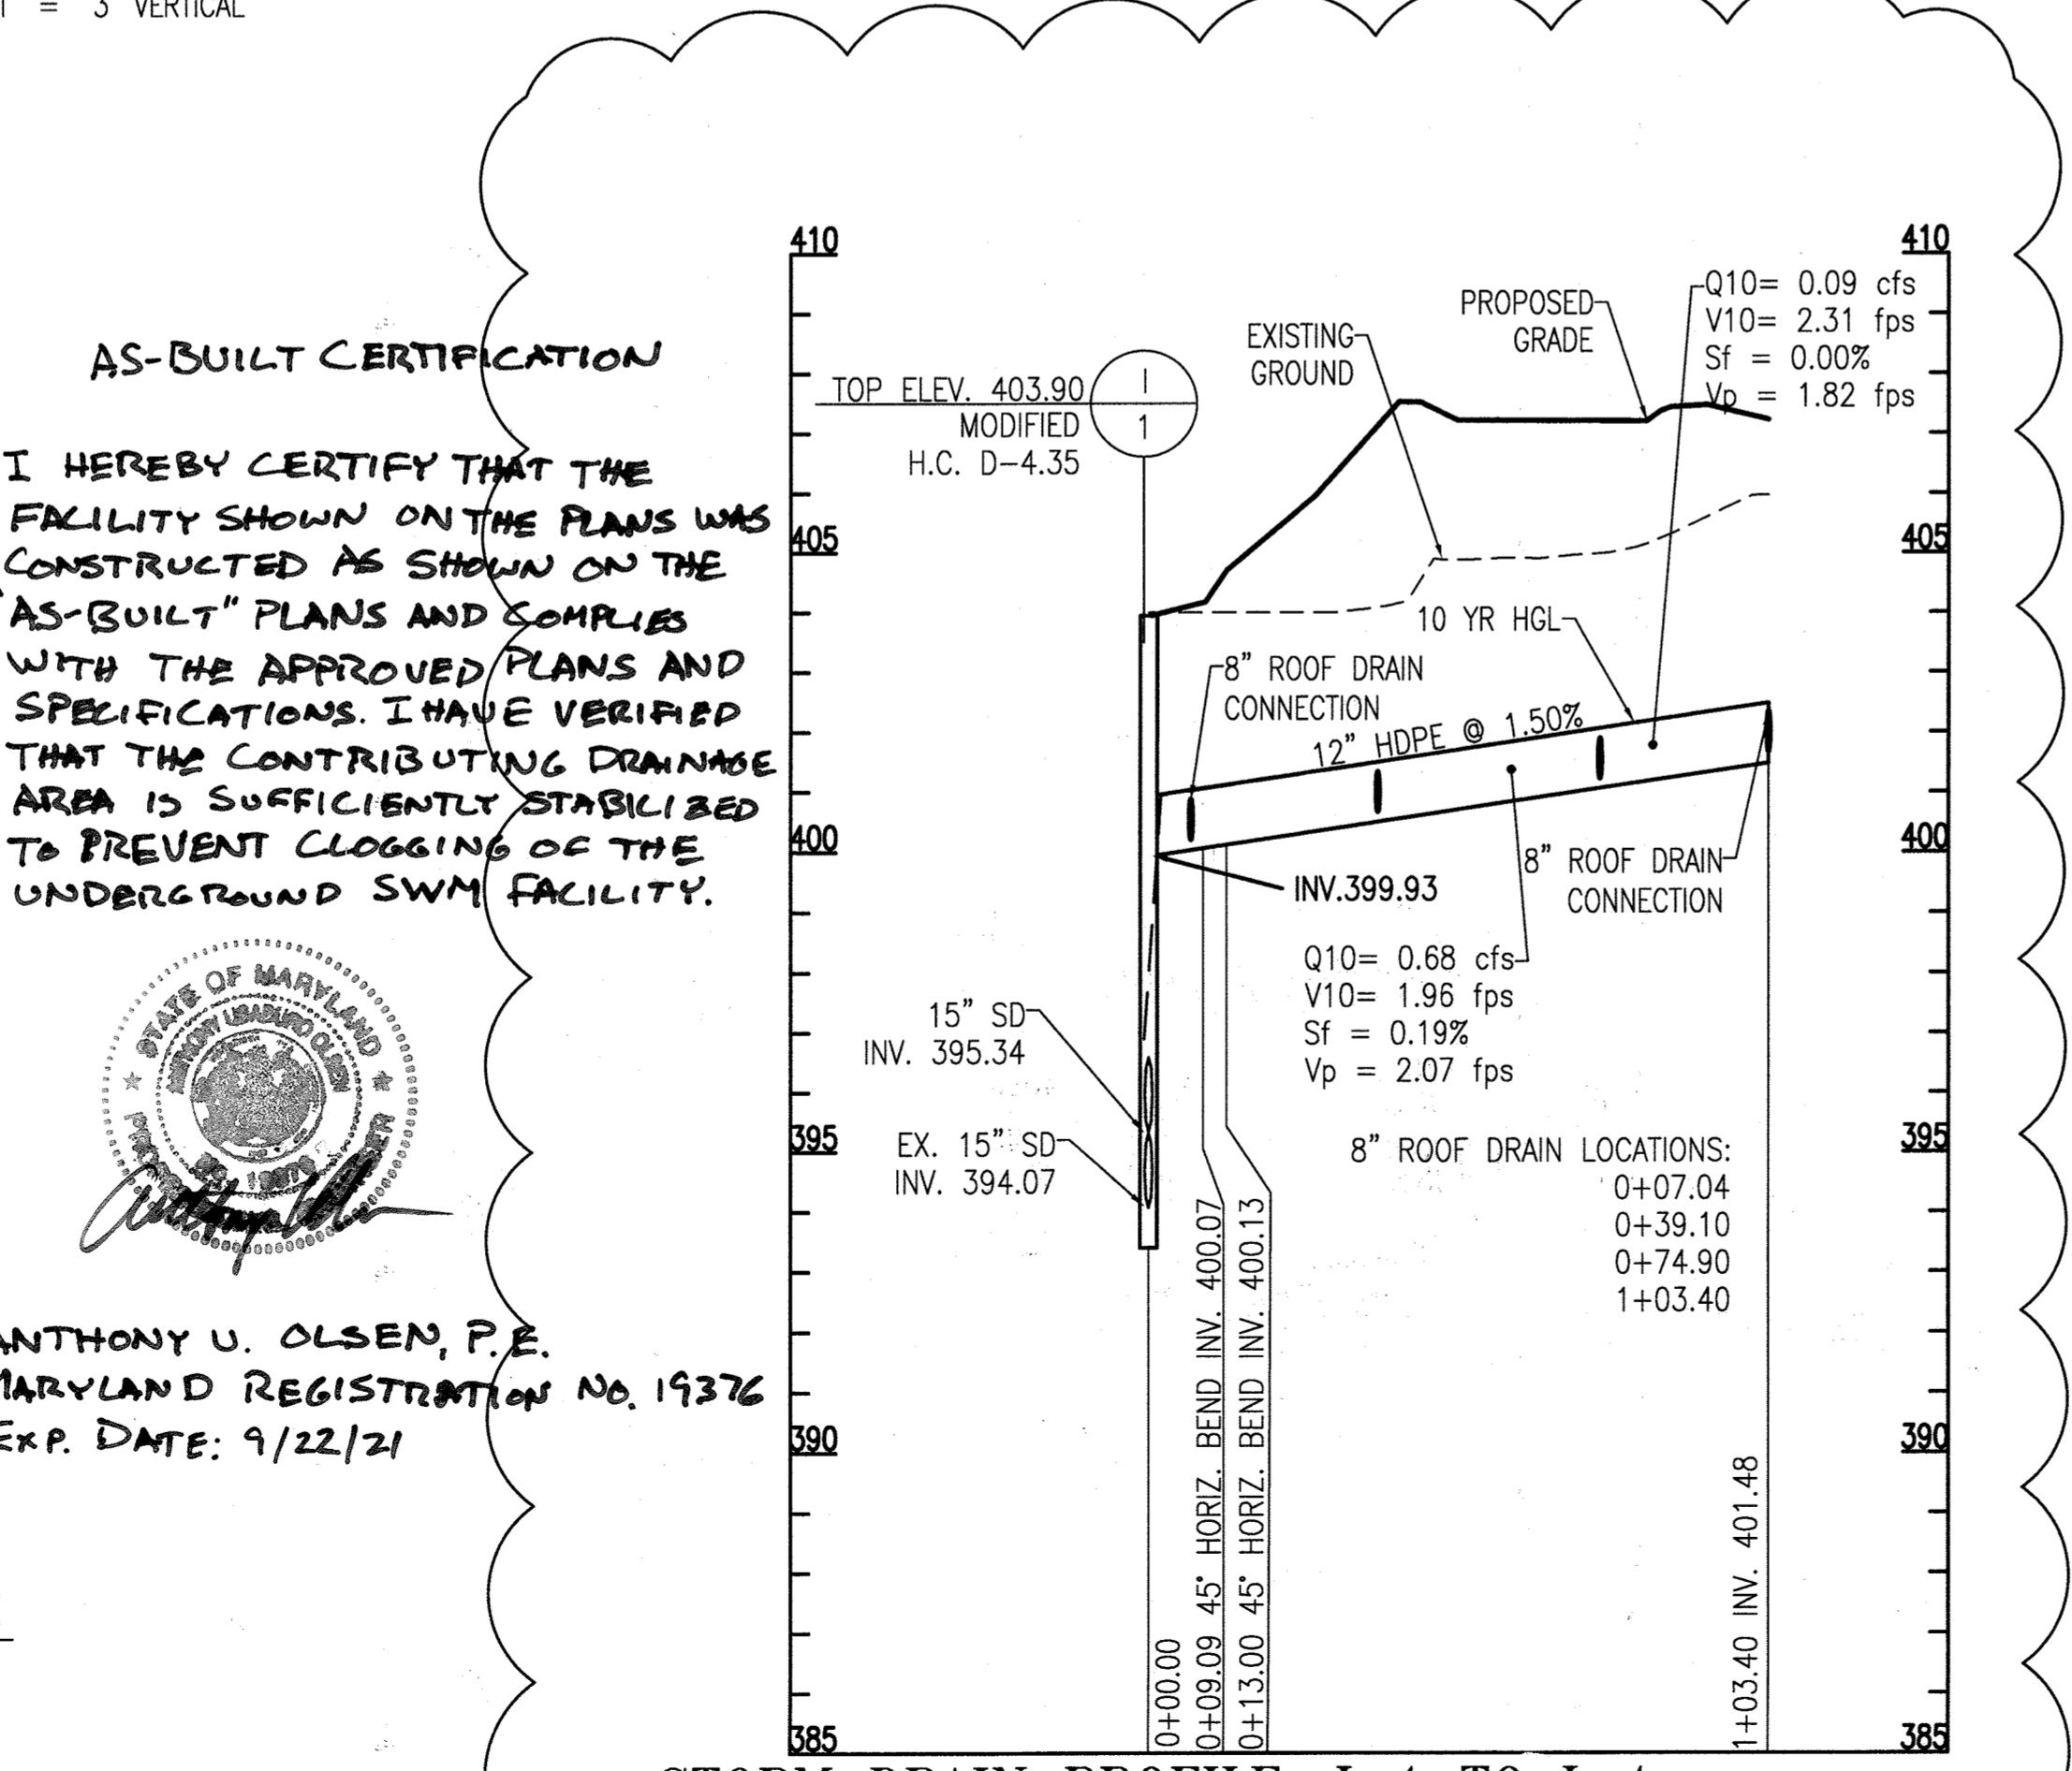 = 3 VERTICAL
AS-BUILT CERTIFICATION
I HEREBY CERTIFY THAT THE
FACILITY SHOWN ON THE PLANS WAS
CONSTRUCTED AS SHOWN ON THE
"AS-BUILT" PLANS AND COMPLIES
WITH THE APPROVED PLANS AND
SPECIFICATIONS. I HAVE VERIFIED
THAT THE CONTRIBUTING DRAINAGE
AREA IS SUFFICIENTLY STABILIZED
TO PREVENT CLOGGING OF THE
UNDERGROUND SWM FACILITY.
STATE OF MARYLAND
ANTHONY U. OLSEN, P.E.
MARYLAND REGISTRATION NO. 19376
EXP. DATE: 9/22/21
410
405
400
395
390
385
TOP ELEV. 403.90
MODIFIED
H.C. D-4.35
I
1
EXISTING
GROUND
PROPOSED
GRADE
410
405
400
395
390
385
Q10= 0.09 cfs
V10= 2.31 fps
Sf = 0.00%
Vp = 1.82 fps
10 YR HGL
8" ROOF DRAIN
CONNECTION
12" HDPE @ 1.50%
INV.399.93
8" ROOF DRAIN
CONNECTION
Q10= 0.68 cfs
V10= 1.96 fps
Sf = 0.19%
Vp = 2.07 fps
15" SD
INV. 395.34
EX. 15" SD
INV. 394.07
8" ROOF DRAIN LOCATIONS:
0+07.04
0+39.10
0+74.90
1+03.40
0+00.00
0+09.09 45° HORIZ. BEND INV. 400.07
0+13.00 45° HORIZ. BEND INV. 400.13
1+03.40 INV. 401.48
STORM DRAIN PROFILE